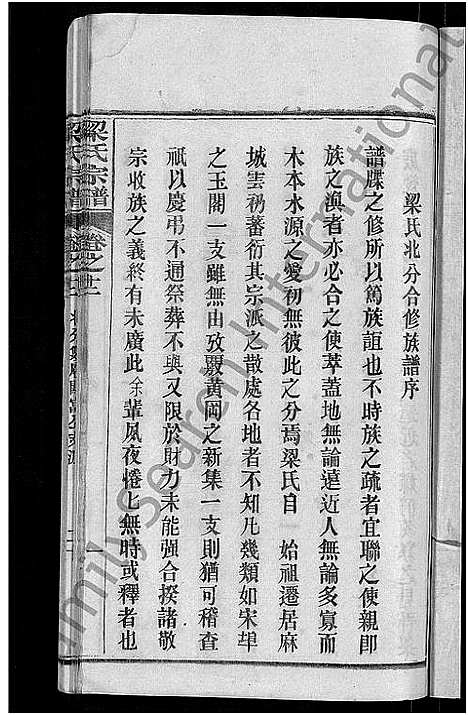 梁氏北分合修族譜序
譜牒之修所以篤族誼也不時族之疏者宜聯之使親即
族之渙者亦必合之使萃蓋地無論遠近人無論多寡而
木本水源之愛初無彼此之分焉梁氏自　始祖遷居麻
城雲礽蕃衍其宗派之散處各地者不知凡幾類如宋埠
之玉閣一支雖無由攷覈黃岡之新集一支則猶可稽查
祇以慶弔不通祭葬不與又限於財力未能强合揆諸敬
宗收族之義終有未廣此余輩夙夜惓匕無時或釋者也
梁氏宗譜
卷之
一
Family Search International